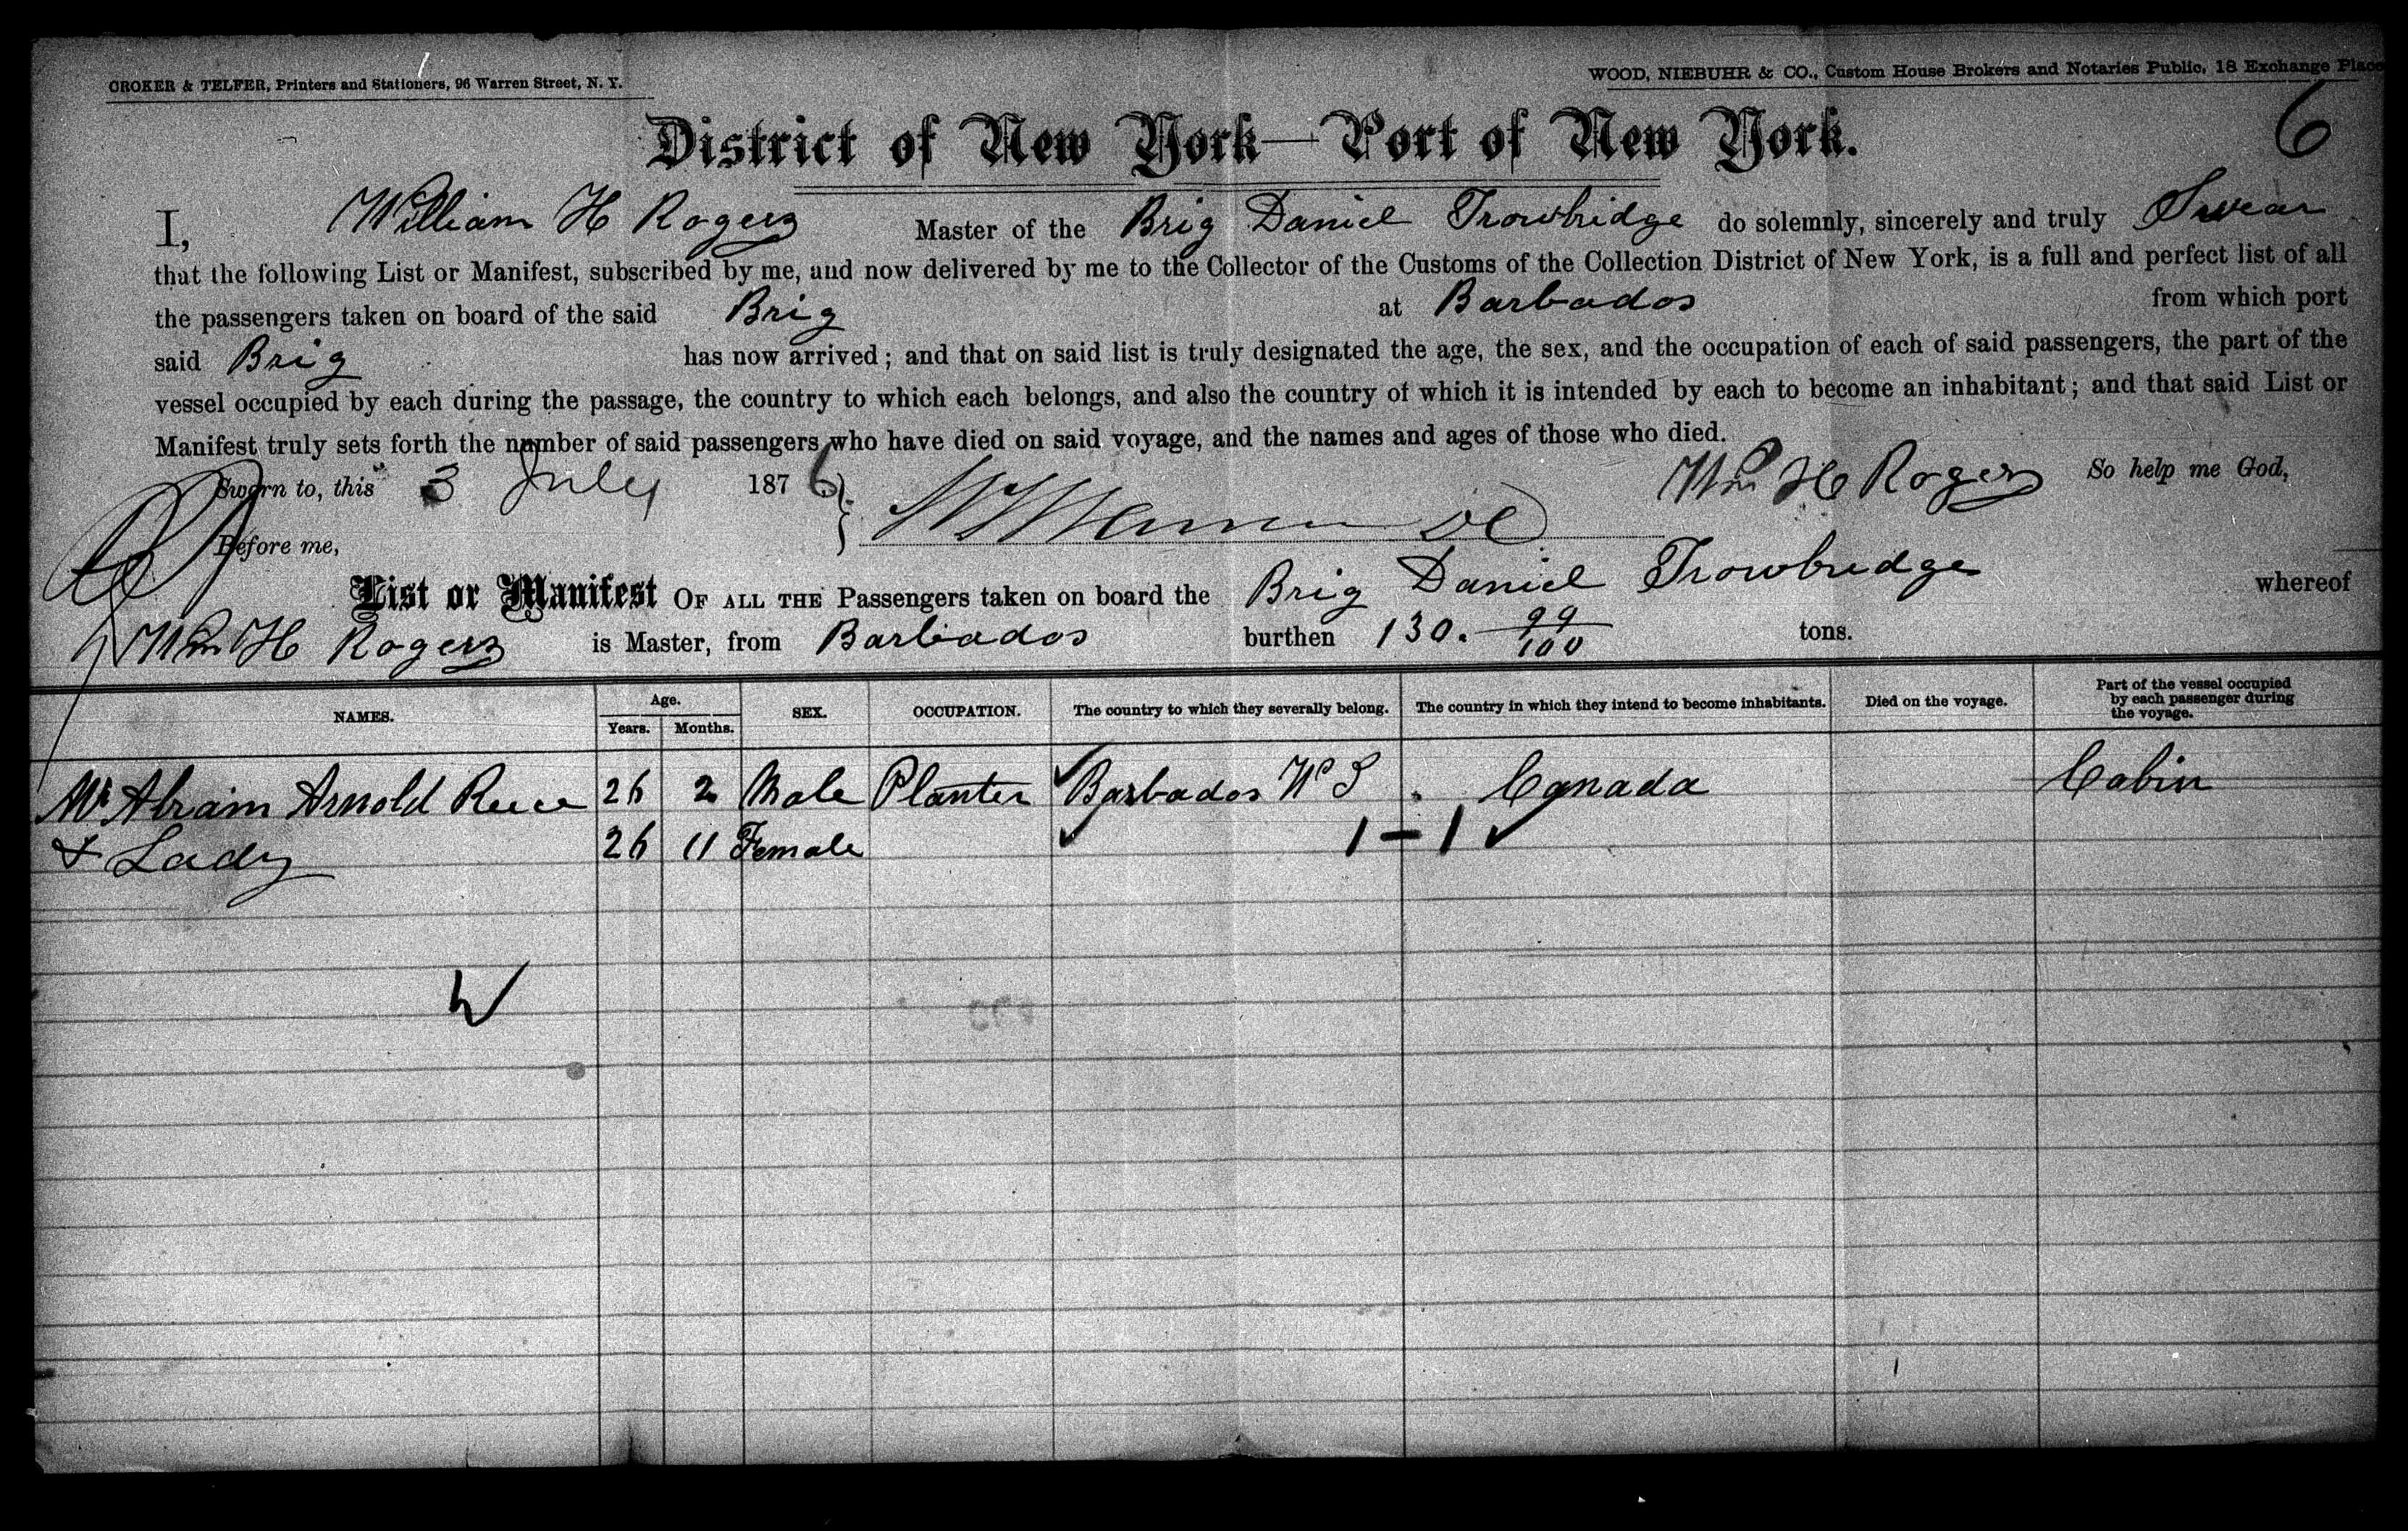 CROKER & TELFER, Printers and Stationers, 96 Warren Street, N. Y.
WOOD, NIEBUHR & CO., Custom House Brokers and Notaries Public, 18 Exchange Place
6
District of New York—Port of New York.
I, William H Rogers Master of the Brig Daniel Trowbridge do solemnly, sincerely and truly Swear
that the following List or Manifest, subscribed by me, and now delivered by me to the Collector of the Customs of the Collection District of New York, is a full and perfect list of all
the passengers taken on board of the said Brig at Barbados from which port
said Brig has now arrived; and that on said list is truly designated the age, the sex, and the occupation of each of said passengers, the part of the
vessel occupied by each during the passage, the country to which each belongs, and also the country of which it is intended by each to become an inhabitant; and that said List or
Manifest truly sets forth the number of said passengers who have died on said voyage, and the names and ages of those who died.
Sworn to, this 3 July 1876 } Wm H Rogers So help me God,
Before me,
List or Manifest OF ALL THE Passengers taken on board the Brig Daniel Trowbridge whereof
Wm H Rogers is Master, from Barbados burthen 130. 99/100 tons.
NAMES. Age. Years. Months. SEX. OCCUPATION. The country to which they severally belong. The country in which they intend to become inhabitants. Died on the voyage. Part of the vessel occupied by each passenger during the voyage.
Mr Abram Arnold Reece 26 2 Male Planter Barbados W I Canada Cabin
& Lady 26 11 Female 1 – 1